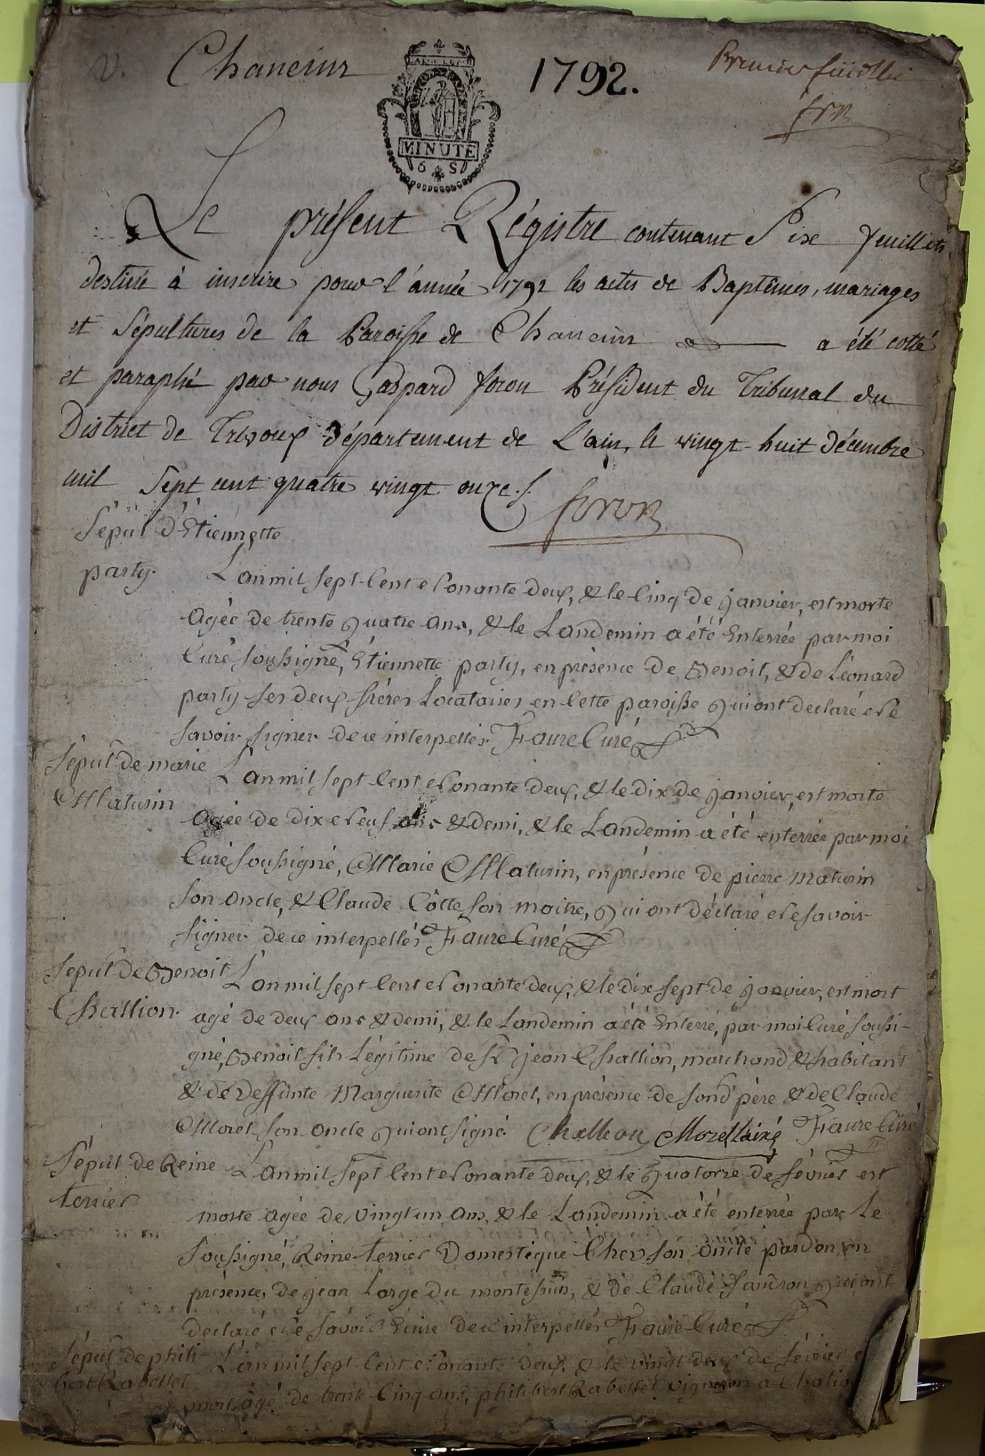 V. Chaneins
1792.
Premier feüillet
frn
MINUTE
6 S
Le présent Régistre contenant Six feuillets
destiné à inscrire pour l'année 1792 les actes de Baptêmes, mariages
et sépultures de la Paroisse de Chaneins a été cotté
et paraphé par nous Gaspard foron Président du Tribunal du
District de Trevoux département de L'ain, le vingt huit décembre
mil sept cent quatre vingt onze ./. foron
Sépul d'Etiennette
party.
L'an mil sept cent nonante deux, & le cinq de janvier, est morte
agée de trente quatre ans, & le Landemin a été enterrée par moi
Curé soussigné, Etiennette party, en présence de Benoit, & de Léonard
party ses deux frères Locataires en cette paroisse qui ont declaré ne
savoir signer de ce interpellés. Faure Curé
Sepul de marie
Maturin
L'an mil sept cent nonante deux, & le dix de janvier, est morte
agée de dix neuf ans & demi, & le Landemin a été enterrée par moi
Curé soussigné, Marie Maturin, en présence de pierre maturin
son oncle, & Claude Côtte son maitre, qui ont déclaré ne savoir
signer de ce interpellés Faure Curé
Sepul de Benoit
Challion.
L'an mil sept cent nonante deux, & le dix sept de janvier, est mort
agé de deux ans & demi, & le Landemin a été enterré, par moi Curé soussi-
gné, Benoit fils Légitime de Sr jean Challion, marchand & habitant
& de deffunte Marguerite Moret, en présence de son d père & de Claude
Moret son oncle qui ont signé. Faure Curé
Sépul de Reine
terrier
L'an mil sept cent nonante deux, & le quatorze de février est
morte agée de vingt un ans, & le Landemin a été enterrée par le
soussigné, Reine terrier Domestique Chés son oncle pardon, en
présence, de jean Large du & de Claude qui ont
declaré ne savoir de ce interpellés Faure Curé
Sépul de phili-
bert Rabettet
L'an mil sept cent nonante deux, & le vingt deux de février
mort agé de cinq ans, philibert Rabettet vigneron a